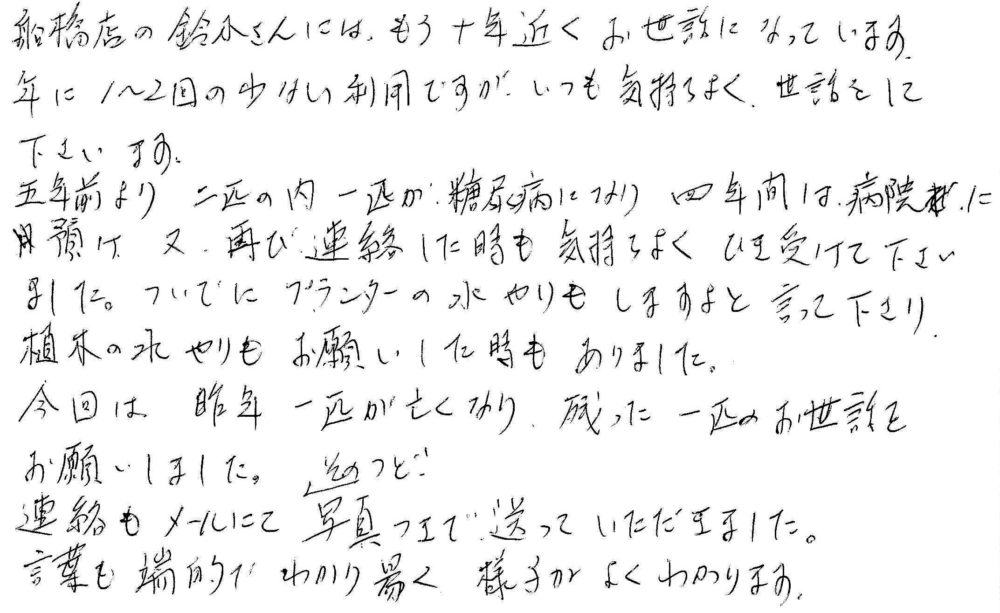 船橋店の鈴木さんには、もう十年近くお世話になっています。
年に1〜2回の少ない利用ですが、いつも気持ちよく、世話をして
下さいます。
五年前より 二匹の内 一匹が、糖尿病になり 四年間は、病院に
預け 又、再び、連絡した時も 気持ちよく ひき受けて下さい
ました。ついでに プランターの水やりも しますよと 言って下さり、
植木の水やりも お願いした時も ありました。
今回は 昨年 一匹が亡くなり、残った 一匹のお世話を
お願いしました。 そのつど
連絡も メールにて 写真つきで 送って いただきました。
言葉も 端的で わかり易く 様子が よく わかります。